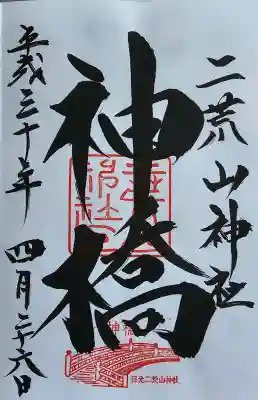 二荒山神社
神橋
平成三十年 四月二十六日
神橋
日光二荒山神社